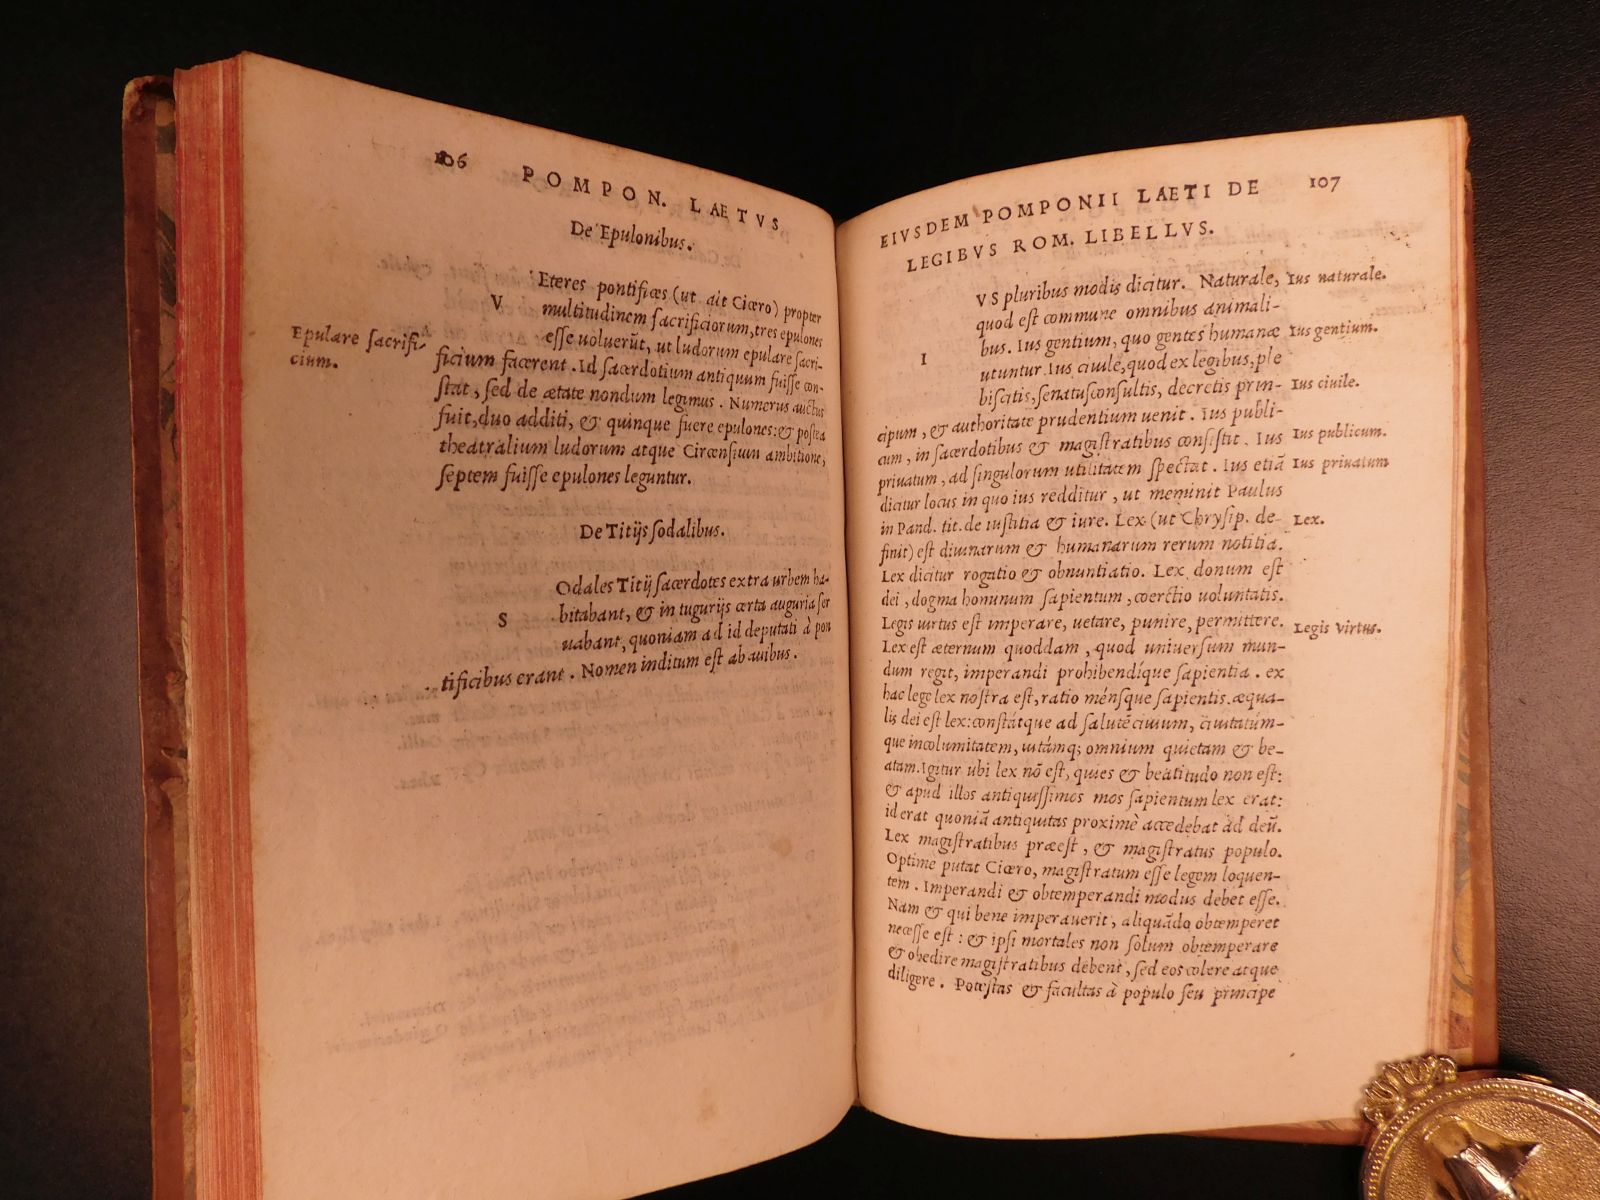 106 POMPON. LAETVS
De Epulonibus.
VEteres pontifices (ut ait Cicero) propter
multitudinem sacrificiorum, tres epulones
esse uoluerũt, ut ludorum epulare sacri-
Epulare sacrifi-
cium.
ficium facerent. Id sacerdotium antiquum fuisse con-
stat, sed de ætate nondum legimus. Numerus auctus
fuit, duo additi, & quinque fuere epulones: & postea
theatralium ludorum atque Circensium ambitione,
septem fuisse epulones leguntur.
De Titijs sodalibus.
SOdales Titij sacerdotes extra urbem ha-
bitabant, & in tugurijs certa auguria ser
uabant, quoniam ad id deputati à pon
tificibus erant. Nomen inditum est ab auibus.
EIVSDEM POMPONII LAETI DE 107
LEGIBVS ROM. LIBELLVS.
IVS pluribus modis dicitur. Naturale, Ius naturale.
quod est commune omnibus animali-
bus. Ius gentium, quo gentes humanæ Ius gentium.
utuntur. Ius ciuile, quod ex legibus, ple
biscitis, senatusconsultis, decretis prin- Ius ciuile.
cipum, & authoritate prudentium uenit. Ius publi-
cum, in sacerdotibus & magistratibus consistit. Ius Ius publicum.
priuatum, ad singulorum utilitatem spectat. Ius etiã Ius priuatum
dicitur locus in quo ius redditur, ut meminit Paulus
in Pand. tit. de iustitia & iure. Lex (ut Chrysip. de- Lex.
finit) est diuinarum & humanarum rerum notitia.
Lex dicitur rogatio & obnuntiatio. Lex donum est
dei, dogma hominum sapientum, coerctio uoluntatis.
Legis uirtus est imperare, uetare, punire, permittere. Legis virtus.
Lex est æternum quoddam, quod uniuersum mun-
dum regit, imperandi prohibendíque sapientia. ex
hac lege lex nostra est, ratio ménsque sapientis. æqua-
lis dei est lex: constátque ad salutẽ ciuium, ciuitatúm-
que incolumitatem, uitámq; omnium quietam & be-
atam. Igitur ubi lex nõ est, quies & beatitudo non est:
& apud illos antiquissimos mos sapientum lex erat:
id erat quoniã antiquitas proximè accedebat ad deũ.
Lex magistratibus præest, & magistratus populo.
Optime putat Cicero, magistratum esse legem loquen-
tem. Imperandi & obtemperandi modus debet esse.
Nam & qui bene imperauerit, aliquãdo obtemperet
necesse est: & ipsi mortales non solum obtemperare
& obedire magistratibus debent, sed eos colere atque
diligere. Potestas & facultas à populo seu principe